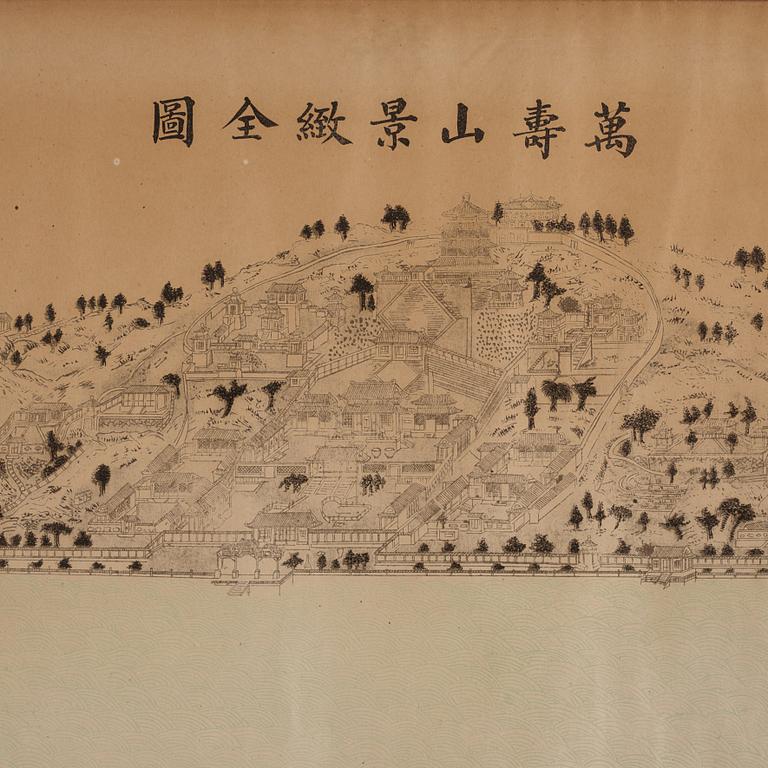 萬壽山景緻全圖